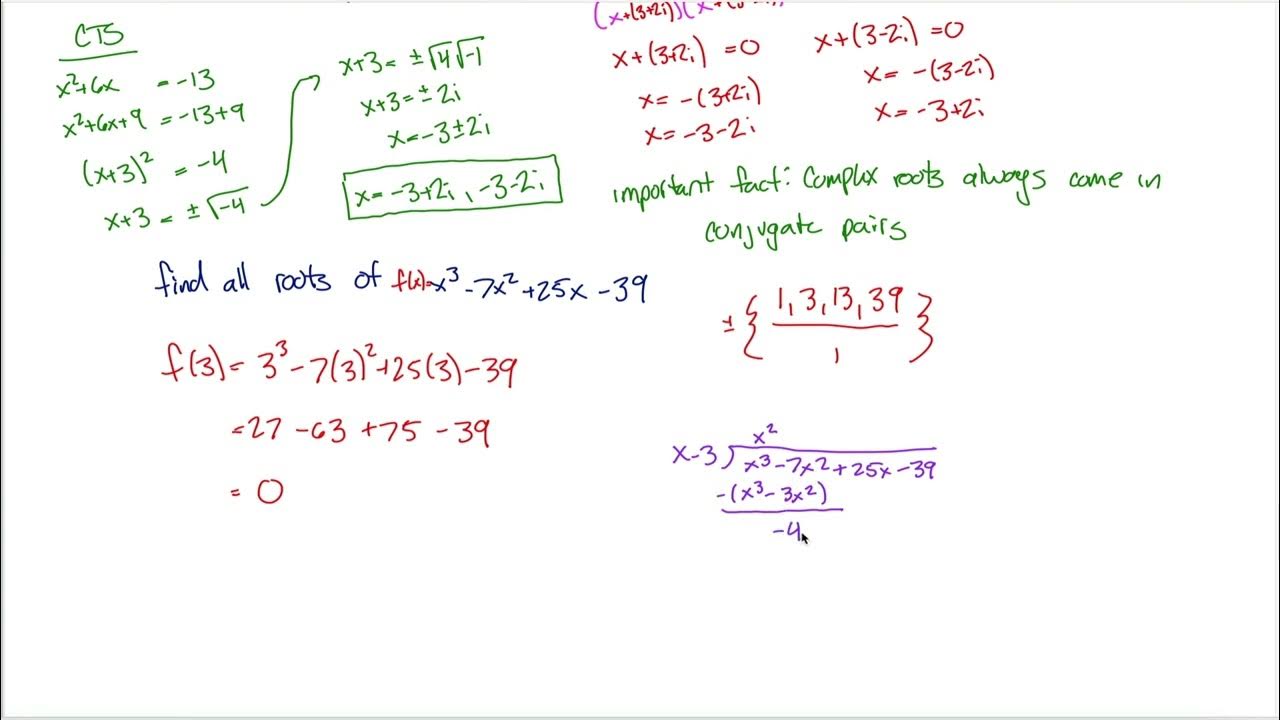 CTS
x²+6x = -13
x²+6x+9 = -13+9
(x+3)² = -4
x+3 = ±√-4
x+3 = ±√4√-1
x+3 = ± 2i
x = -3 ± 2i
x = -3+2i, -3-2i
(x+(3+2i))(x+
x+(3+2i) = 0
x = -(3+2i)
x = -3-2i
x+(3-2i) = 0
x = -(3-2i)
x = -3+2i
important fact: Complex roots always come in
conjugate pairs
find all roots of f(x)=x³-7x²+25x-39
± { 1, 3, 13, 39 }
1
f(3) = 3³-7(3)²+25(3)-39
=27-63+75-39
= 0
x²
x-3 ) x³-7x²+25x-39
-(x³-3x²)
-4